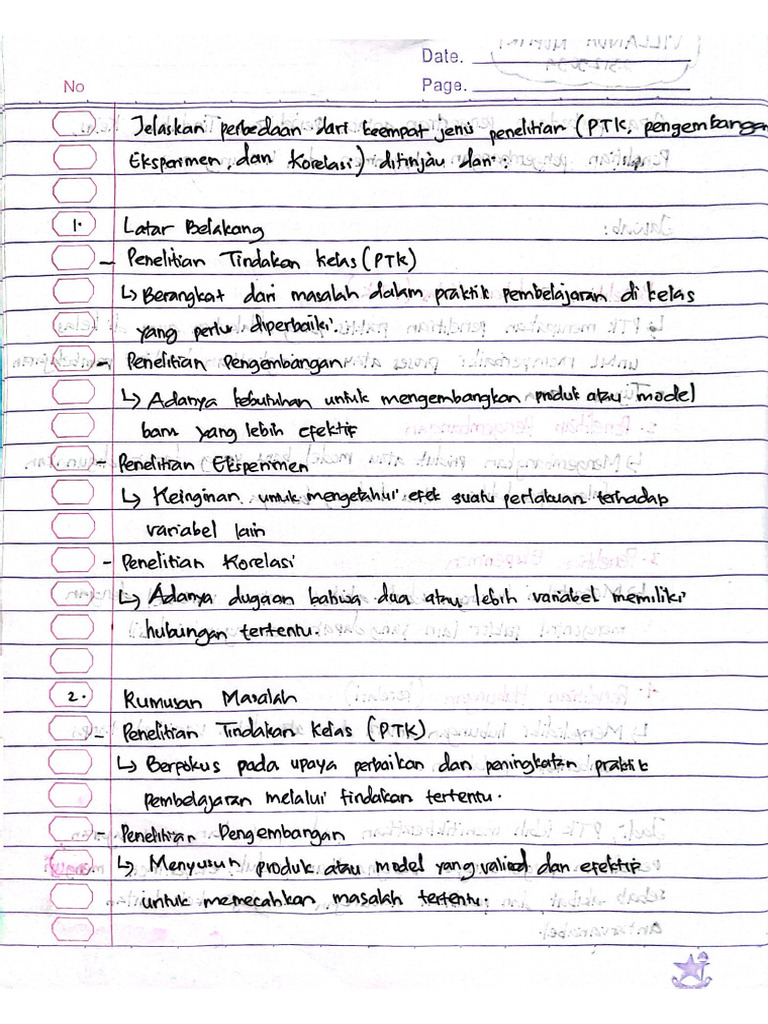 Date.
No
Page.
Jelaskan perbedaan dari keempat jenis penelitian (PTK, pengembangan
Eksperimen, dan Korelasi) ditinjau dari :
1. Latar Belakang
- Penelitian Tindakan Kelas (PTK)
↳ Berangkat dari masalah dalam praktik pembelajaran di kelas
yang perlu diperbaiki.
- Penelitian Pengembangan
↳ Adanya kebutuhan untuk mengembangkan produk atau model
baru yang lebih efektif
- Penelitian Eksperimen
↳ Keinginan untuk mengetahui efek suatu perlakuan terhadap
variabel lain
- Penelitian Korelasi
↳ Adanya dugaan bahwa dua atau lebih variabel memiliki
hubungan tertentu.
2. Rumusan Masalah
- Penelitian Tindakan Kelas (PTK)
↳ Berfokus pada upaya perbaikan dan peningkatan praktik
pembelajaran melalui tindakan tertentu.
- Penelitian Pengembangan
↳ Menyusun produk atau model yang valid dan efektif
untuk memecahkan masalah tertentu.